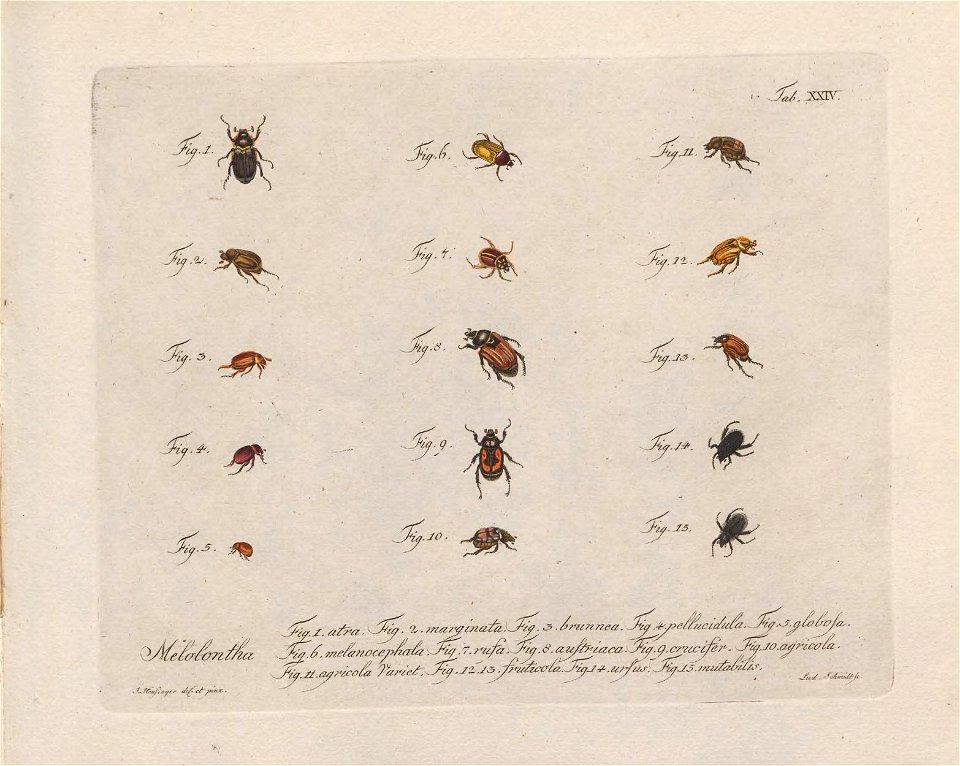 Tab. XXIV.
Fig. 1.
Fig. 6.
Fig. 11.
Fig. 2.
Fig. 7.
Fig. 12.
Fig. 3.
Fig. 8.
Fig. 13.
Fig. 4.
Fig. 9.
Fig. 14.
Fig. 5.
Fig. 10.
Fig. 15.
Melolontha
Fig. 1. atra. Fig. 2. marginata. Fig. 3. brunnea. Fig. 4. pellucidula. Fig. 5. globoſa.
Fig. 6. melanocephala. Fig. 7. rufa. Fig. 8. auſtriaca. Fig. 9. crucifer. Fig. 10. agricola.
Fig. 11. agricola Variet. Fig. 12. 13. fruticola. Fig. 14. urſus. Fig. 15. mutabilis.
del. et pinx.
Lud. Schmidt ſc.